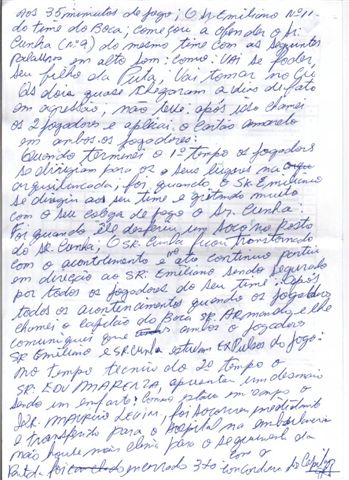 Aos 35 minutos de jogo; O Sr Emiliano Nº 11
do time do Boca, começou a ofender o Sr.
Cunha (nº 9) do mesmo time com as seguintes
Palavras em alto som: como: Vai se foder,
seu filho da Puta, Vai tomar no Cú
Os dois quase chegaram a vias de fato
em agressão, não feito após isso chamei
os 2 jogadores e apliquei o cartão amarelo
em ambos os jogadores:
Quando terminei o 1º tempo os jogadores
se dirigiam para os seus lugares na
arquibancada, foi quando o SR. Emiliano
se dirigiu aos seu time e gritando muito
com o seu colega de jogo o Sr. Cunha.
Foi quando ele desferiu um Soco no Rosto
do SR. Cunha; O SR. Cunha ficou transtornado
com o acontecimento e no ato continuo partiu
em direção ao SR. Emiliano sendo segurado
por todos os jogadores do seu time; Após
todos os acontecimentos quando os jogadores
chamei o capitão do Boca SR. Armando, e lhe
comuniquei que ambos o jogadores
SR Emiliano e SR. Cunha estavam Expulsos do jogo.
No tempo tecnico do 2º tempo o
SR. EDU MARENZA, apresentou um desmaio
sendo um enfarto: como placar em campo o
SR. MAURICIO, foi socorrido
e transferido para o Hospital na ambulância
mais houve mais clima para o seguimento da
Partida foi encerrado 3x0 com a concordancia do Capitão